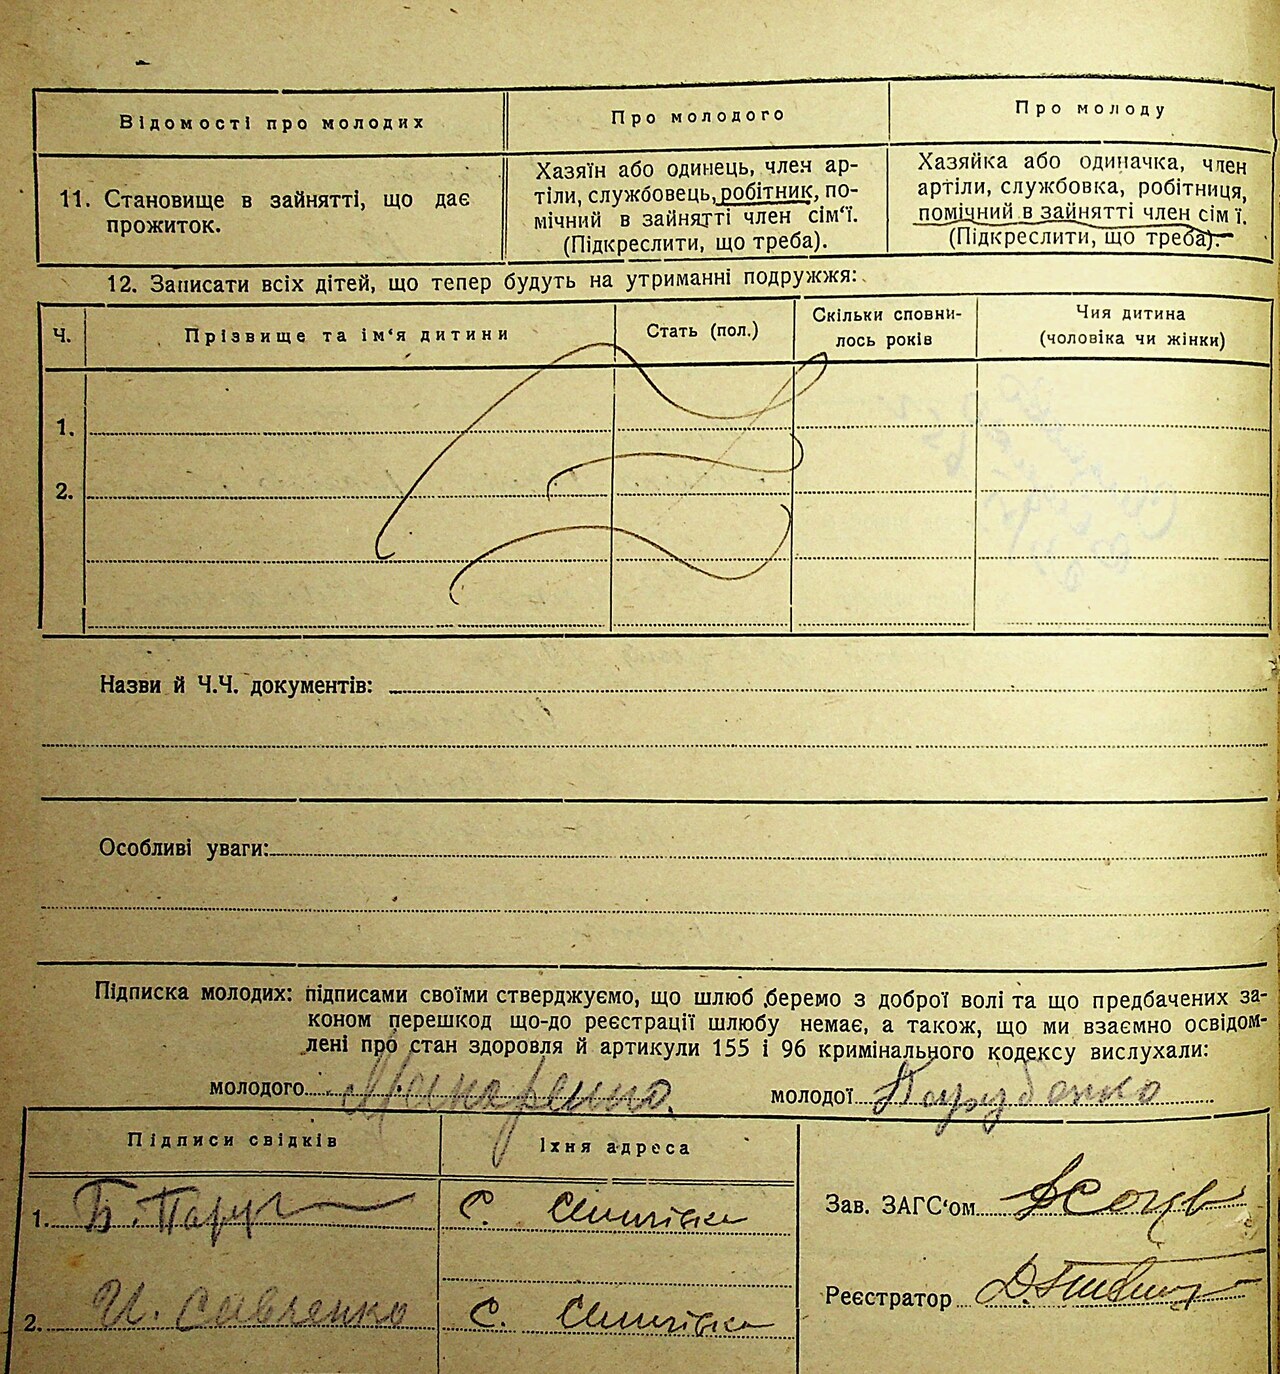 Відомості про молодих
Про молодого
Про молоду
11. Становище в зайнятті, що дає
прожиток.
Хазяїн або одинець, член ар-
тіли, службовець, робітник, по-
мічний в зайнятті член сім'ї.
(Підкреслити, що треба).
Хазяйка або одиначка, член
артіли, службовка, робітниця,
помічний в зайнятті член сім ї.
(Підкреслити, що треба).
12. Записати всіх дітей, що тепер будуть на утриманні подружжя:
Ч.
Прізвище та ім'я дитини
Стать (пол.)
Скільки сповни-
лось років
Чия дитина
(чоловіка чи жінки)
1.
2.
Назви й Ч.Ч. документів:
Особливі уваги:
Підписка молодих: підписами своїми стверджуємо, що шлюб беремо з доброї волі та що предбачених за-
коном перешкод що-до реєстрації шлюбу немає, а також, що ми взаємно освідом-
лені про стан здоровля й артикули 155 і 96 кримінального кодексу вислухали:
молодого Макаренко. молодої
Підписи свідків
Їхня адреса
1. С.
Зав. ЗАГС'ом
2. И. Савченко С.
Реєстратор